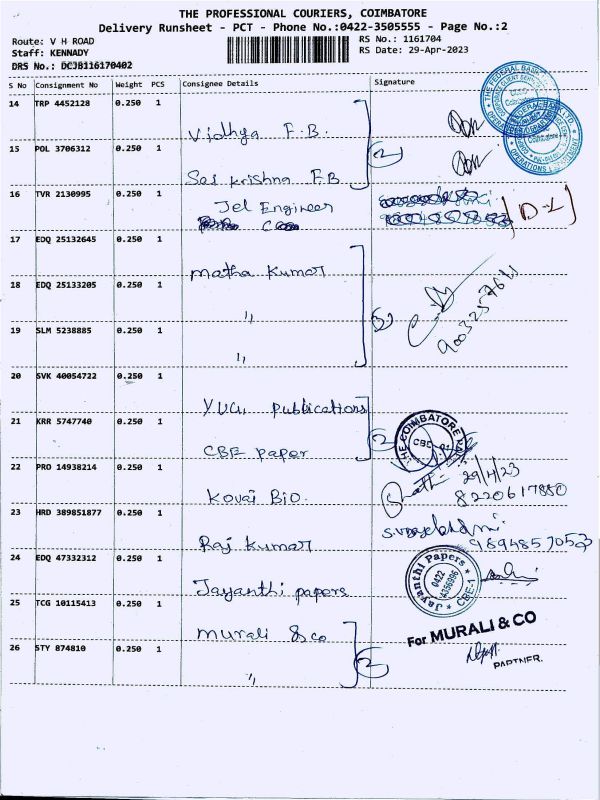 THE PROFESSIONAL COURIERS, COIMBATORE
Delivery Runsheet - PCT - Phone No.:0422-3505555 - Page No.:2
Route: V H ROAD
RS No.: 1161704
Staff: KENNADY
RS Date: 29-Apr-2023
DRS No.: DCJB116170402
S No Consignment No Weight PCS Consignee Details Signature
14 TRP 4452128 0.250 1
Vidhya F.B.
15 POL 3706312 0.250 1
2
Sai Krishna F.B
16 TVR 2130995 0.250 1
Jel Engineer
D-L
17 EDQ 25132645 0.250 1
Matha Kumar
18 EDQ 25133205 0.250 1
"
3
19 SLM 5238885 0.250 1
"
20 SVK 40054722 0.250 1
YUGI publications
21 KRR 5747740 0.250 1
2
THE COIMBATORE
CBE
CBE paper
22 PRO 14938214 0.250 1
29/4/23
8220617880
Kovai Bio.
23 HRD 389851877 0.250 1
Raj Kumar
24 EDQ 47332312 0.250 1
Jayanthi Papers
0422
CBE-1
Jayanthi papers
25 TCG 10115413 0.250 1
Murali & co
For MURALI & CO
26 STY 874810 0.250 1
2
PARTNER.
"